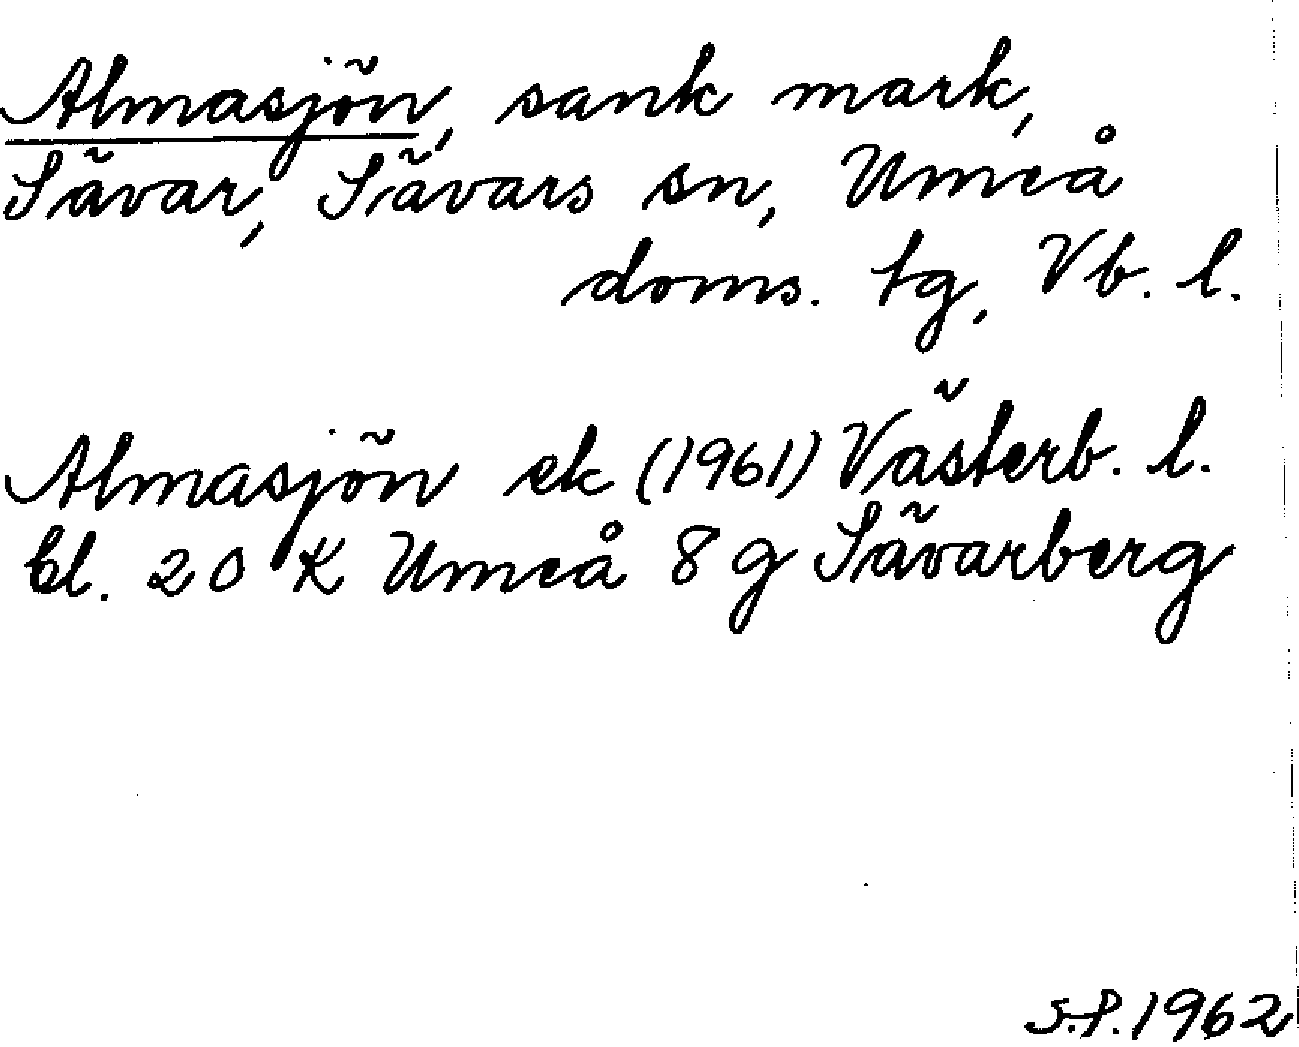 Almasjön, sank mark,
Sävar, Sävars sn, Umeå
doms. tg, Vb. l.
Almasjön ek (1961) Västerb. l.
bl. 20 K Umeå 8 g Sävarberg
S.P. 1962